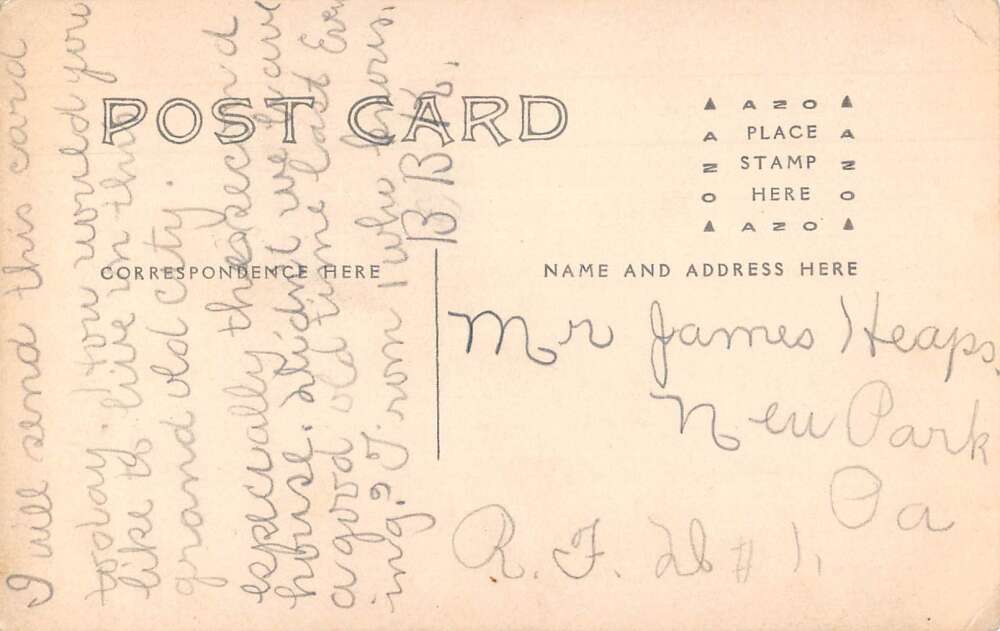 POST CARD
AZO
AZO PLACE AZO
STAMP
HERE
AZO
CORRESPONDENCE HERE
NAME AND ADDRESS HERE
I will send this card
today. How would you
like to live in this
grand old city.
especually the second
house. Didnt we have
a good old time last Even
ing? From 1 who knows.
B B K.
Mr James Heaps.
New Park
Pa
R. F. D # 1.